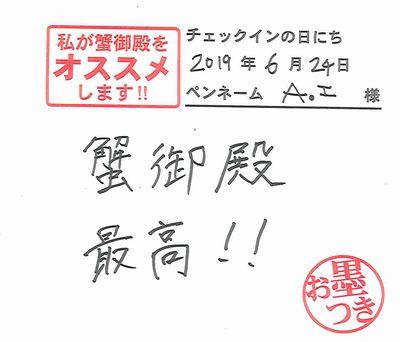 私が蟹御殿を
オススメ
します!!
チェックインの日にち
2019年6月24日
ペンネーム A.I 様
蟹御殿
最高!!
お墨
つき